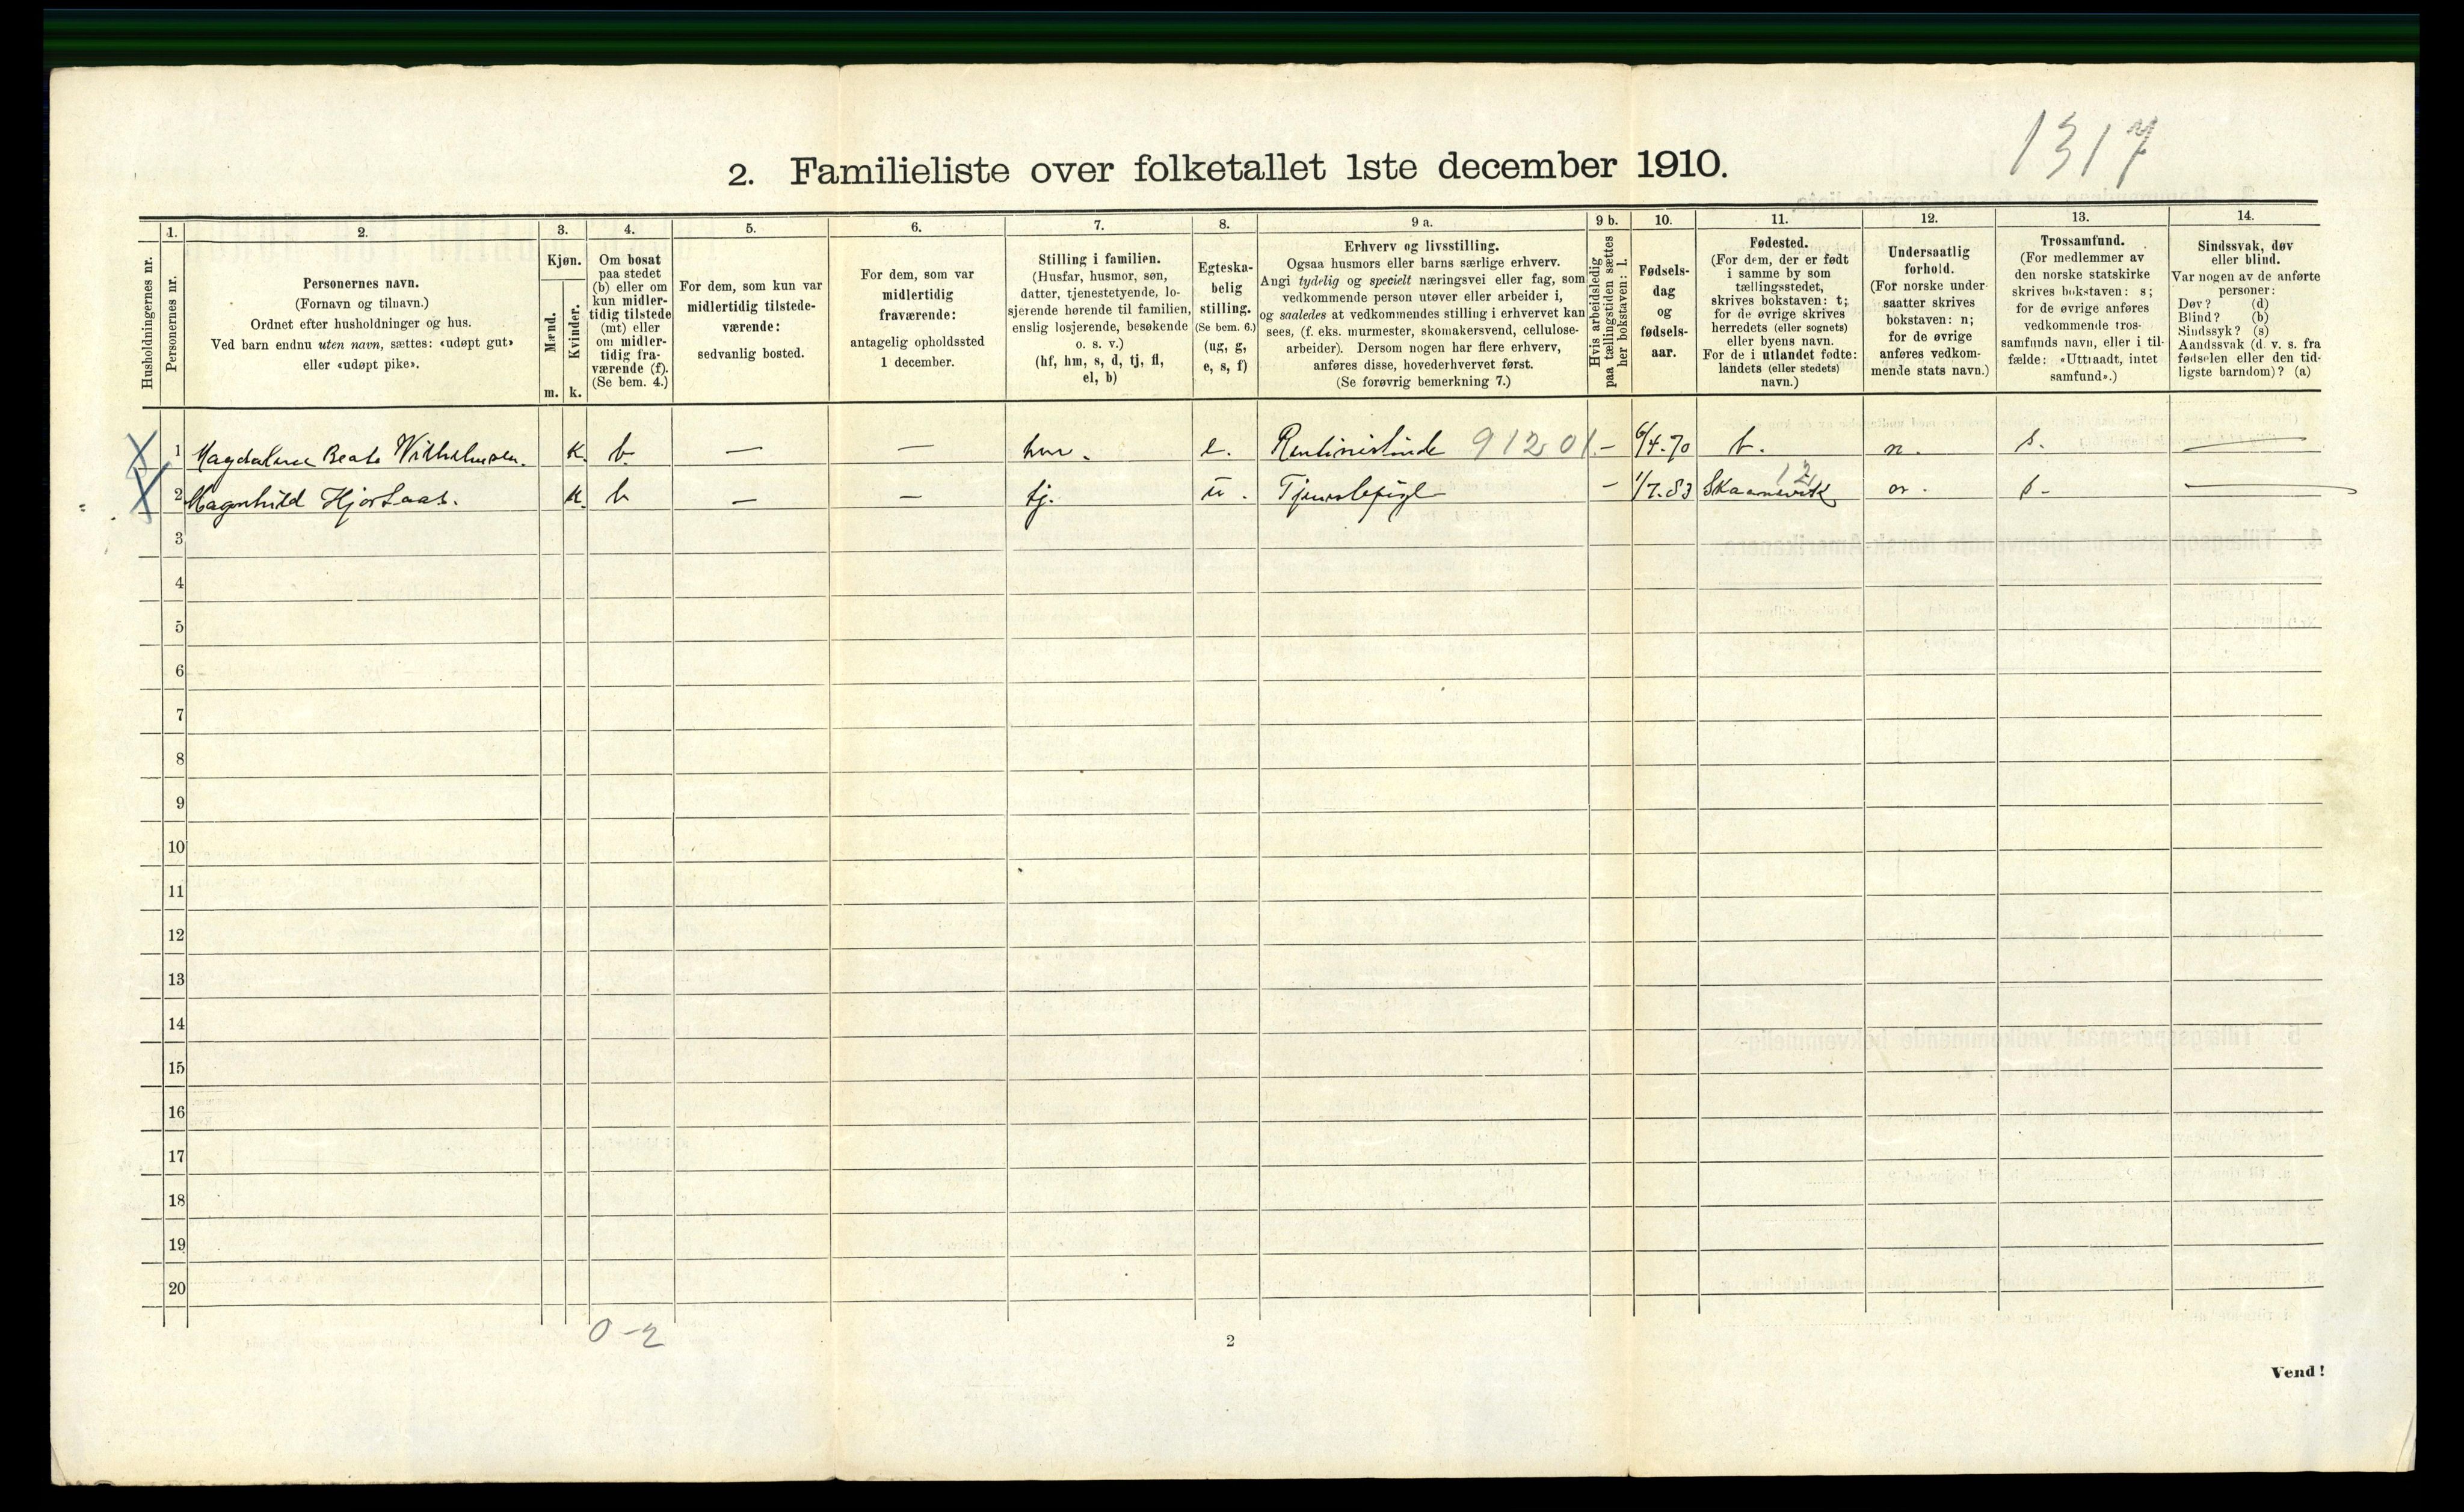 1317
2. Familieliste over folketallet 1ste december 1910.
Husholdningernes nr.
1.
Personernes nr.
2.
Personernes navn.
(Fornavn og tilnavn.)
Ordnet efter husholdninger og hus.
Ved barn endnu uten navn, sættes: «udøpt gut»
eller «udøpt pike».
3.
Kjøn.
Mænd.
Kvinder.
m. k.
4.
Om bosat
paa stedet
(b) eller om
kun midler-
tidig tilstede
(mt) eller
om midler-
tidig fra-
værende (f).
(Se bem. 4.)
5.
For dem, som kun var
midlertidig tilstede-
værende:
sedvanlig bosted.
6.
For dem, som var
midlertidig
fraværende:
antagelig opholdssted
1 december.
7.
Stilling i familien.
(Husfar, husmor, søn,
datter, tjenestetyende, lo-
sjerende hørende til familien,
enslig losjerende, besøkende
o. s. v.)
(hf, hm, s, d, tj, fl,
el, b)
8.
Egteska-
belig
stilling.
(Se bem. 6.)
(ug, g,
e, s, f)
9 a.
Erhverv og livsstilling.
Ogsaa husmors eller barns særlige erhverv.
Angi tydelig og specielt næringsvei eller fag, som
vedkommende person utøver eller arbeider i,
og saaledes at vedkommendes stilling i erhvervet kan
sees, (f. eks. murmester, skomakersvend, cellulose-
arbeider). Dersom nogen har flere erhverv,
anføres disse, hovederhvervet først.
(Se forøvrig bemerkning 7.)
9 b.
Hvis arbeidsledig
paa tællingstiden sættes
her bokstaven: l.
10.
Fødsels-
dag
og
fødsels-
aar.
11.
Fødested.
(For dem, der er født
i samme by som
tællingsstedet,
skrives bokstaven: t;
for de øvrige skrives
herredets (eller sognets)
eller byens navn.
For de i utlandet fødte:
landets (eller stedets)
navn.)
12.
Undersaatlig
forhold.
(For norske under-
saatter skrives
bokstaven: n;
for de øvrige
anføres vedkom-
mende stats navn.)
13.
Trossamfund.
(For medlemmer av
den norske statskirke
skrives bokstaven: s;
for de øvrige anføres
vedkommende tros-
samfunds navn, eller i til-
fælde: «Uttraadt, intet
samfund».)
14.
Sindssvak, døv
eller blind.
Var nogen av de anførte
personer:
Døv? (d)
Blind? (b)
Sindssyk? (s)
Aandssvak (d. v. s. fra
fødselen eller den tid-
ligste barndom)? (a)
X 1 Magdalena Beate Wilhelmsen. K. b. — — hm. e. Rentinistinde 91201 – 6/4.70 t. n. s. —
X 2 Magnhild Hjortaas. K. b — — tj. u. Tjenestepige – 1/7.83 Skaanevik 12 n. s. —
3
4
5
6
7
8
9
10
11
12
13
14
15
16
17
18
19
20
0-2
2
Vend!